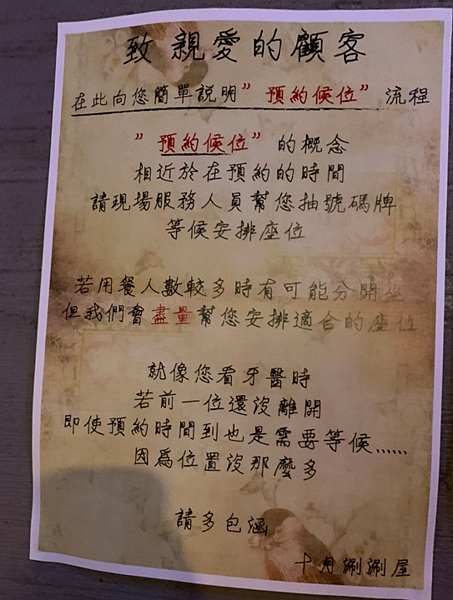 致親愛的顧客
在此向您簡單說明"預約候位"流程
"預約候位"的概念
相近於在預約的時間
請現場服務人員幫您抽號碼牌
等候安排座位
若用餐人數較多時有可能分開坐
但我們會盡量幫您安排適合的座位
就像您看牙醫時
若前一位還沒離開
即使預約時間到也是需要等候......
因為位置沒那麼多
請多包涵
十月涮涮屋